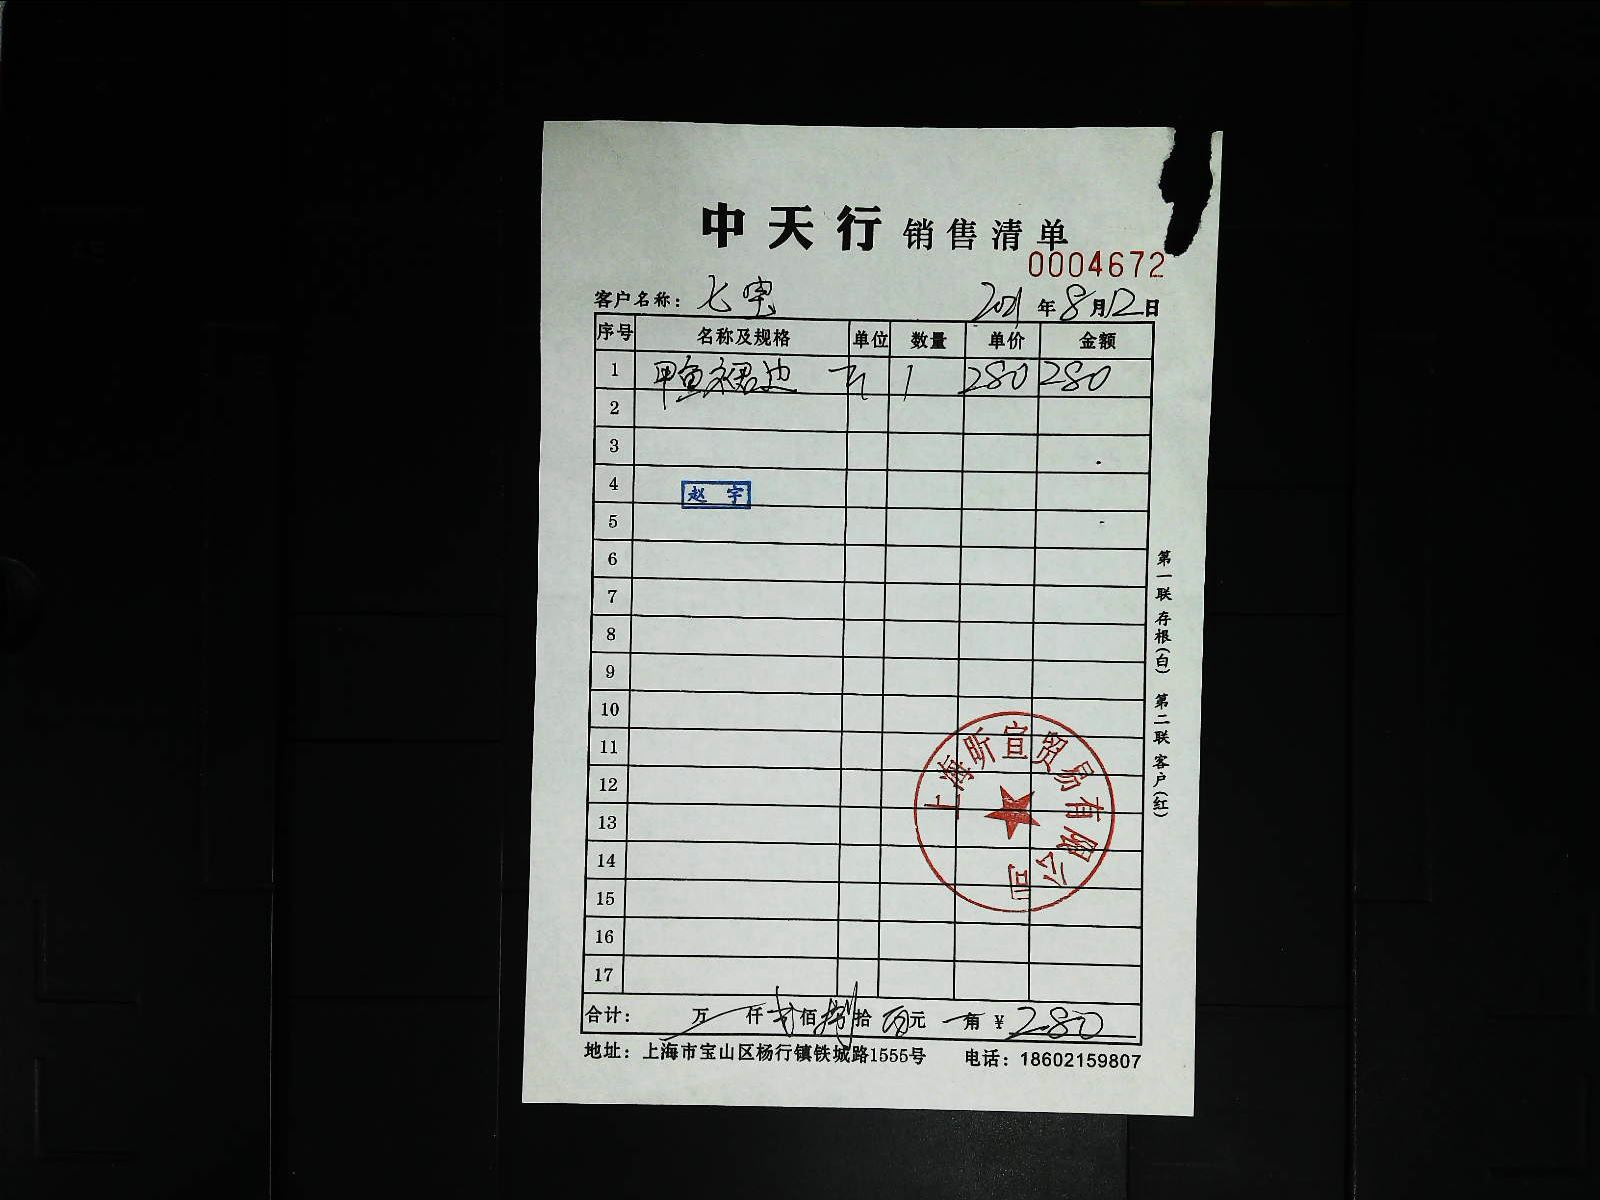 中天行销售清单
0004672
客户名称：七宝 2021年8月12日
序号 名称及规格 单位 数量 单价 金额
1 甲鱼裙边 1 280 280
2
3
4 赵宇
5
6
7
8
9
10
11
12
13
14
15
16
17
上海昕宣贸易有限公司
合计： 万 仟 贰佰捌拾 元 角 ¥280
地址：上海市宝山区杨行镇铁城路1555号 电话：18602159807
第一联 存根(白) 第二联 客户(红)